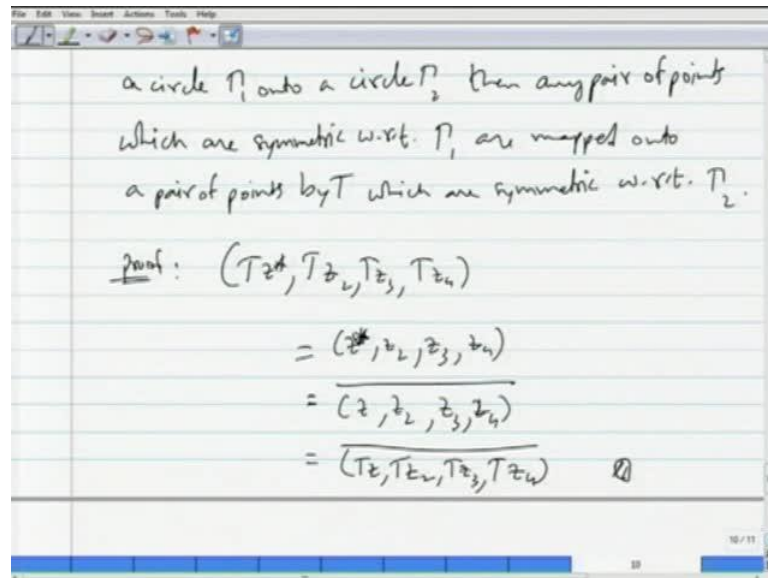 File Edit View Insert Actions Tools Help
a circle Γ₁ onto a circle Γ₂ then any pair of points
which are symmetric w.r.t. Γ₁ are mapped onto
a pair of points by T which are symmetric w.r.t. Γ₂.
proof: (Tz*, Tz₂, Tz₃, Tz₄)
= (z*, z₂, z₃, z₄)
= \overline{(z, z₂, z₃, z₄)}
= \overline{(Tz, Tz₂, Tz₃, Tz₄)}
10/11
10